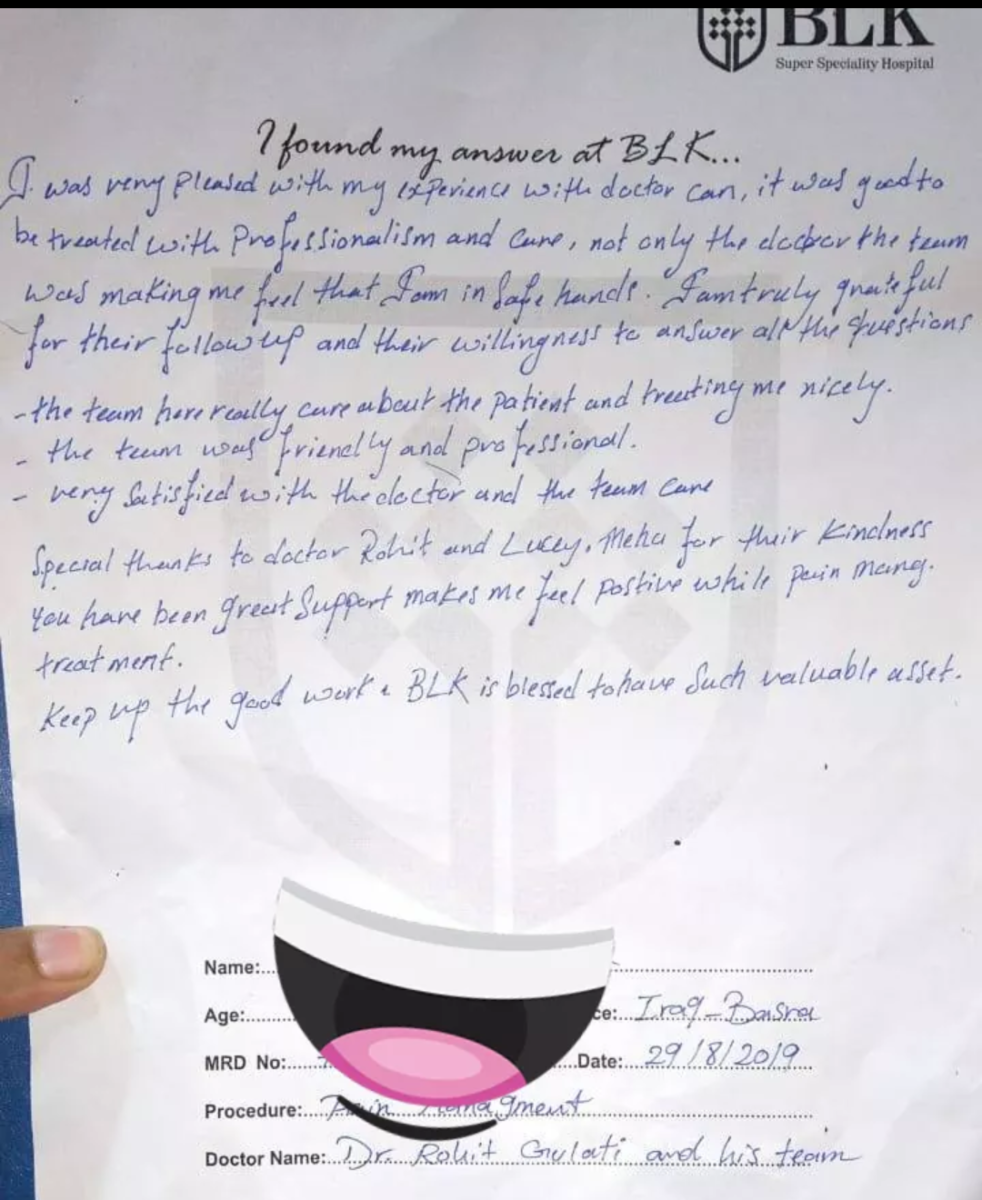 BLK
Super Speciality Hospital
I found my answer at BLK...
I was very pleased with my experience with doctor can, it was good to
be treated with professionalism and care, not only the doctor the team
was making me feel that I am in safe hands. I am truly grateful
for their follow up and their willingness to answer all the questions
- the team here really care about the patient and treating me nicely.
- the team was friendly and professional.
- very satisfied with the doctor and the team care
Special thanks to doctor Rohit and Lucey, Meha for their kindness
you have been great support makes me feel postive while pain mang.
treatment.
Keep up the good work & BLK is blessed to have such valuable asset.
Name:
Age: ce: Iraq - Basra
MRD No: Date: 29/8/2019
Procedure: Pain Managment
Doctor Name: Dr. Rohit Gulati and his team